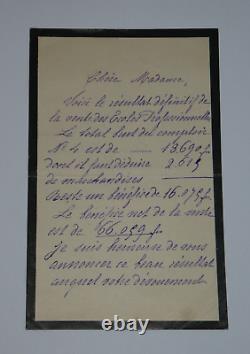 Chère Madame,
Voici le résultat définitif de
la vente des Ecoles Professionnelles
Le total brut du comptoir
N° 4 est de 18.690 f.
dont il faut déduire 2.615
de marchandises
Reste un bénéfice de 16.075 f.
Le bénéfice net de la vente
est de 66.059 f.
Je suis heureuse de vous
annoncer ce beau résultat
auquel votre dévouement
thebookc.com